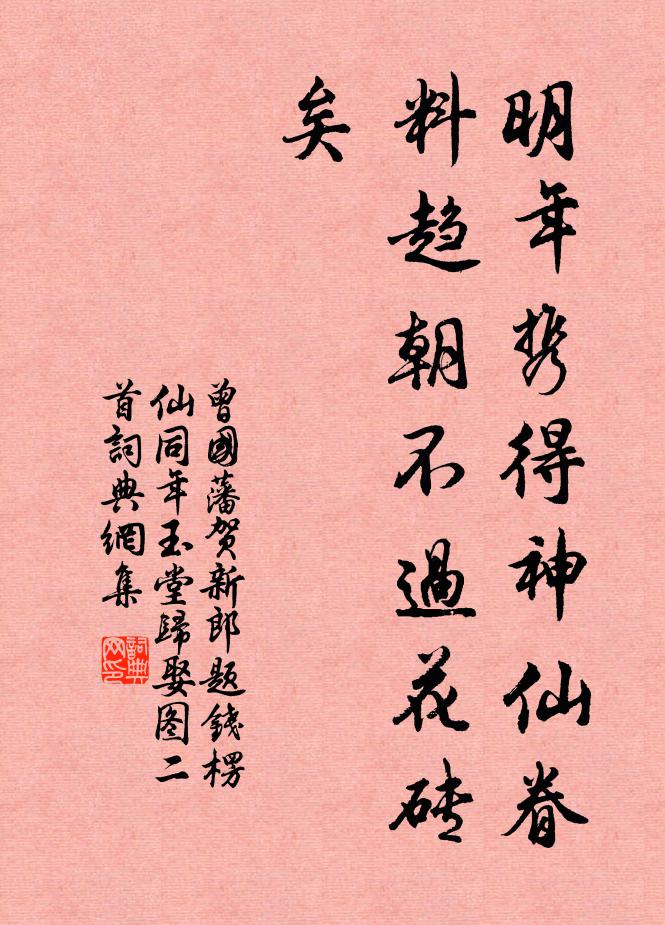 明年携得神仙眷
料趋朝不過花砖
矣
曾國藩贺新郎题錢楞
仙同年玉堂歸娶图二
首詞典網集
詞典网印